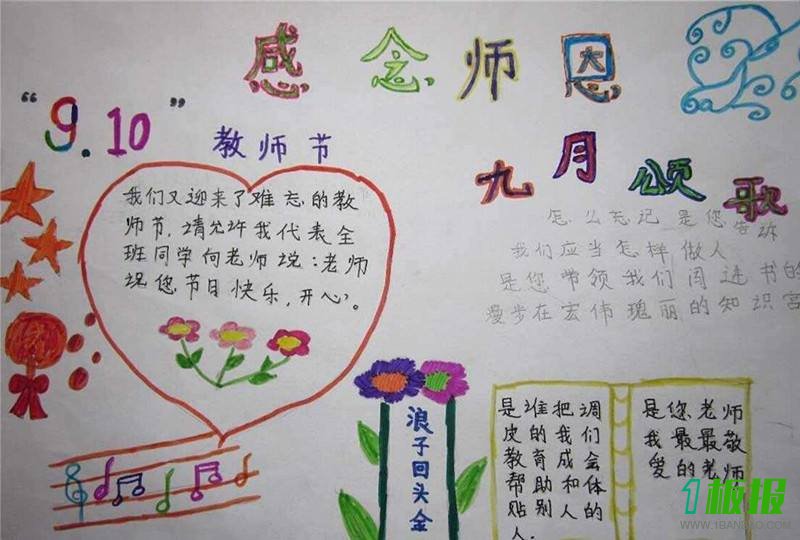 感念师恩
“9.10”
教师节
九月颂歌
我们又迎来了难忘的教
师节,请允许我代表全
班同学向老师说:老师
祝您节日快乐,开心。
怎么忘记是您告诉
我们应当怎样做人
是您带领我们闯进书的
漫步在宏伟瑰丽的知识宫
浪子回头金
是谁把调
皮的我们
教育成会
帮助和体
贴别人的
人。
是您老师
我最最敬
爱的老师
1板报
WWW.1BANBAO.COM